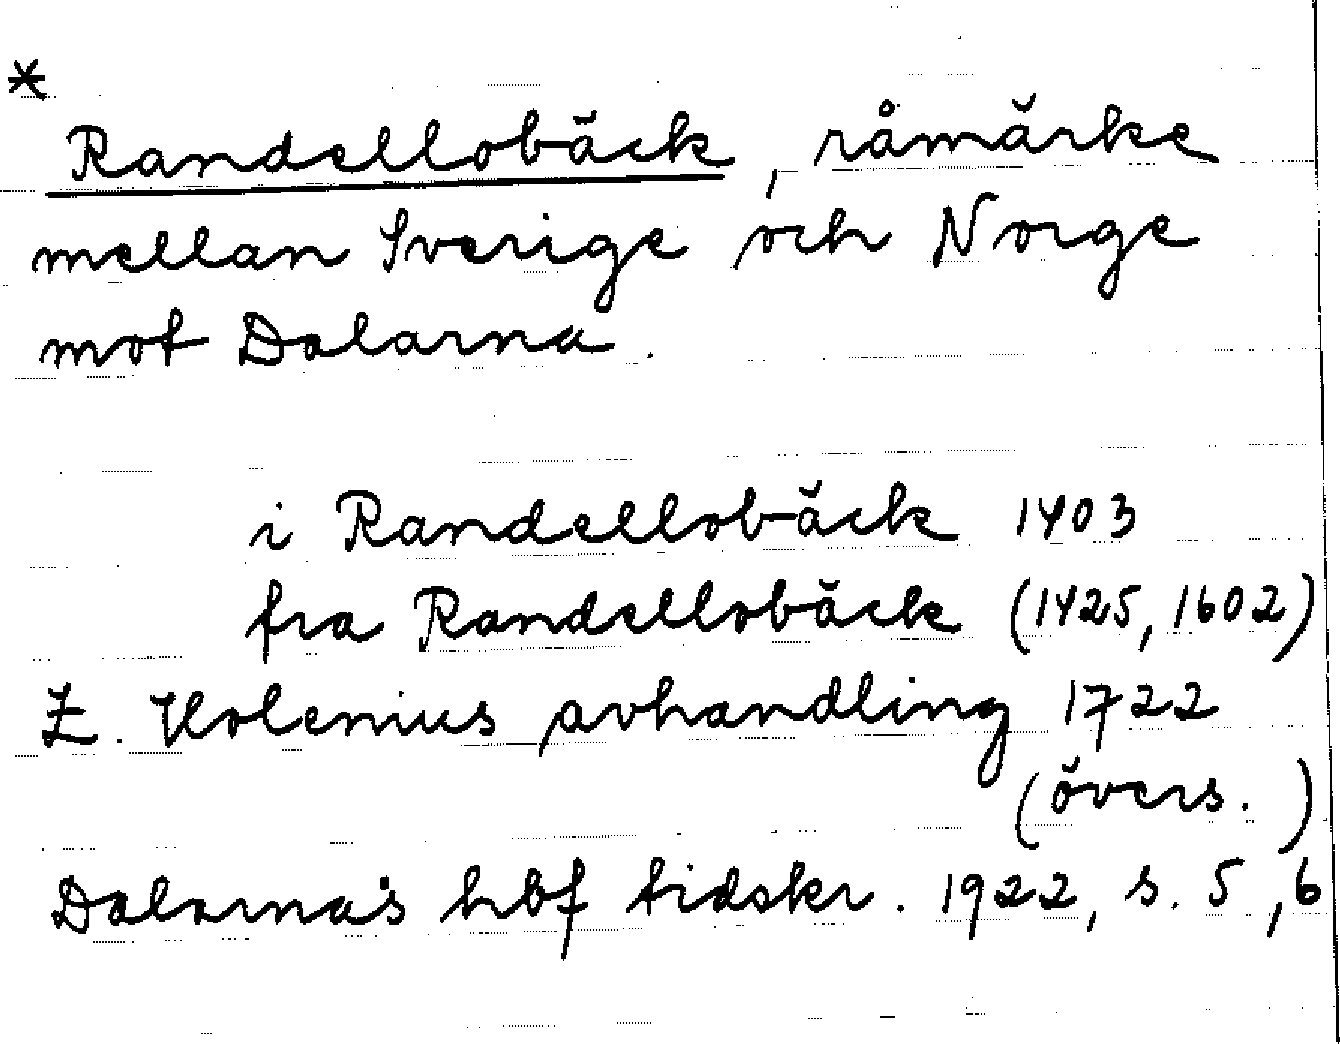 *
Randellobäck, råmärke
mellan Sverige och Norge
mot Dalarna.
i Randellobäck 1403
fra Randellobäck (1425, 1602)
Z. Holenius avhandling 1722
(övers.)
Dalarnas hbf tidskr. 1922, s. 5, 6